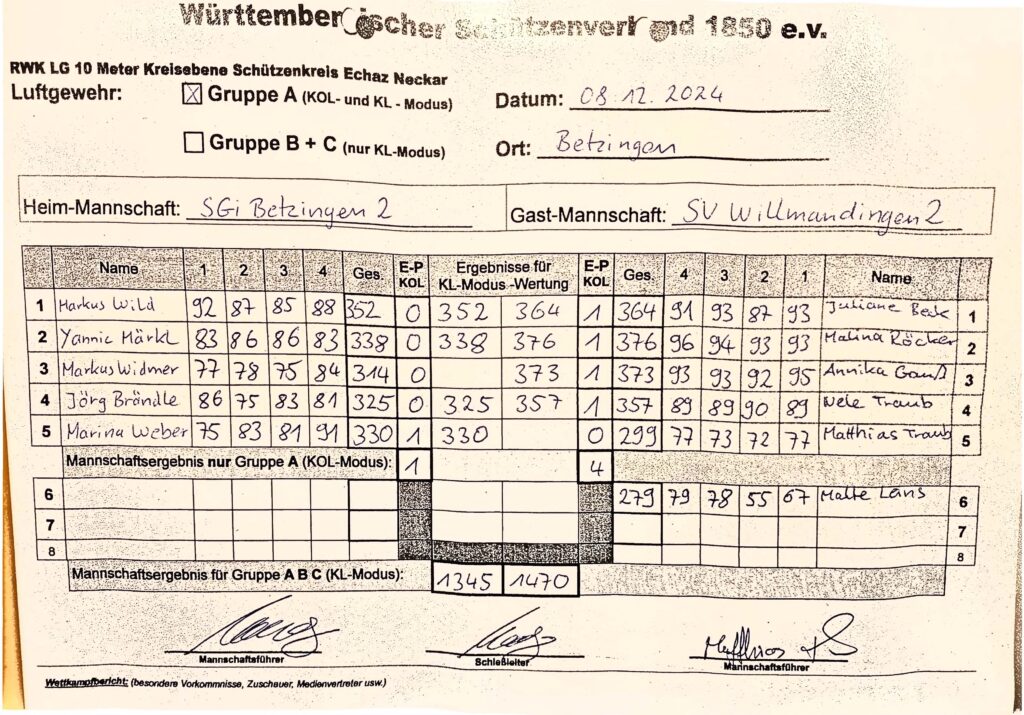 Württembergischer Schützenverband 1850 e.v.
RWK LG 10 Meter Kreisebene Schützenkreis Echaz Neckar
Luftgewehr: ☒ Gruppe A (KOL- und KL - Modus) Datum: 08.12.2024
☐ Gruppe B + C (nur KL-Modus) Ort: Betzingen
Heim-Mannschaft: SGi Betzingen 2 Gast-Mannschaft: SV Willmandingen 2
Name 1 2 3 4 Ges. E-P KOL Ergebnisse für KL-Modus -Wertung E-P KOL Ges. 4 3 2 1 Name
1 Markus Wild 92 87 85 88 352 0 352 364 1 364 91 93 87 93 Juliane Beck 1
2 Yannic Märkl 83 86 86 83 338 0 338 376 1 376 96 94 93 93 Malina Röcker 2
3 Markus Widmer 77 78 75 84 314 0 373 1 373 93 93 92 95 Annika Gauß 3
4 Jörg Brändle 86 75 83 81 325 0 325 357 1 357 89 89 90 89 Nele Traub 4
5 Marina Weber 75 83 81 91 330 1 330 0 299 77 73 72 77 Matthias Traub 5
Mannschaftsergebnis nur Gruppe A (KOL-Modus): 1 4
6 279 79 78 55 67 Malte Lans 6
7 7
8 8
Mannschaftsergebnis für Gruppe A B C (KL-Modus): 1345 1470
Mannschaftsführer Schießleiter Mannschaftsführer
Wettkampfbericht: (besondere Vorkommnisse, Zuschauer, Medienvertreter usw.)